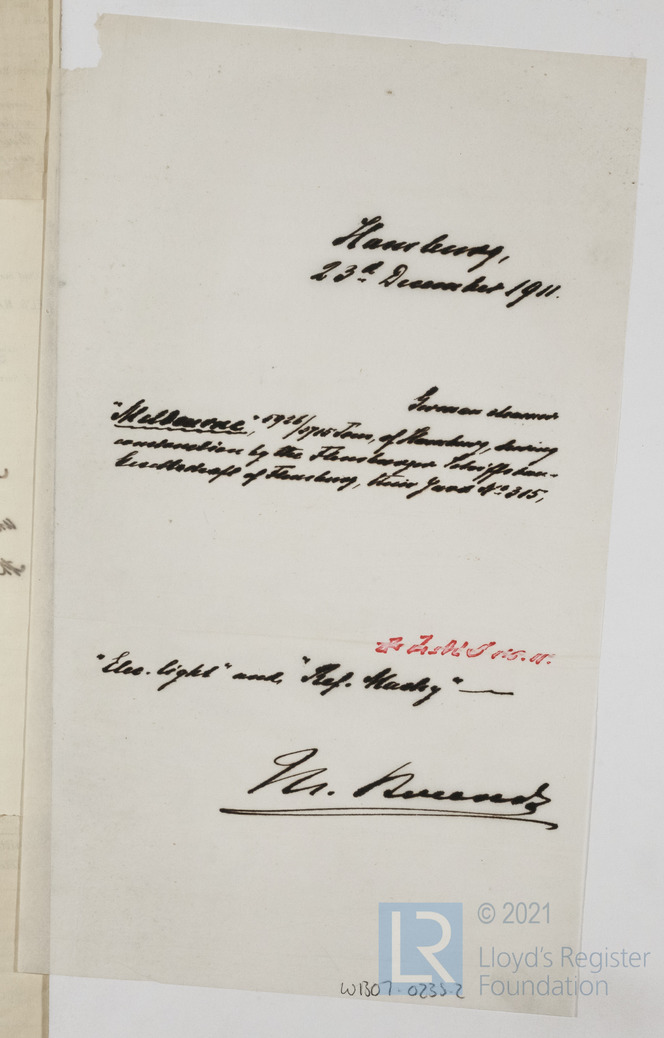 Hamburg,
23rd December 1911.
German steamer
"Melbourne", 5926/ Tons, of Hamburg, during
construction by the Flensburger Schiffsbau-
Gesellschaft of Flensburg, their Yard No 315,
LMC
"Elec. light" and "Ref. Machy" —
M.
© 2021
LR
Lloyd's Register
Foundation
W1307-0235-2